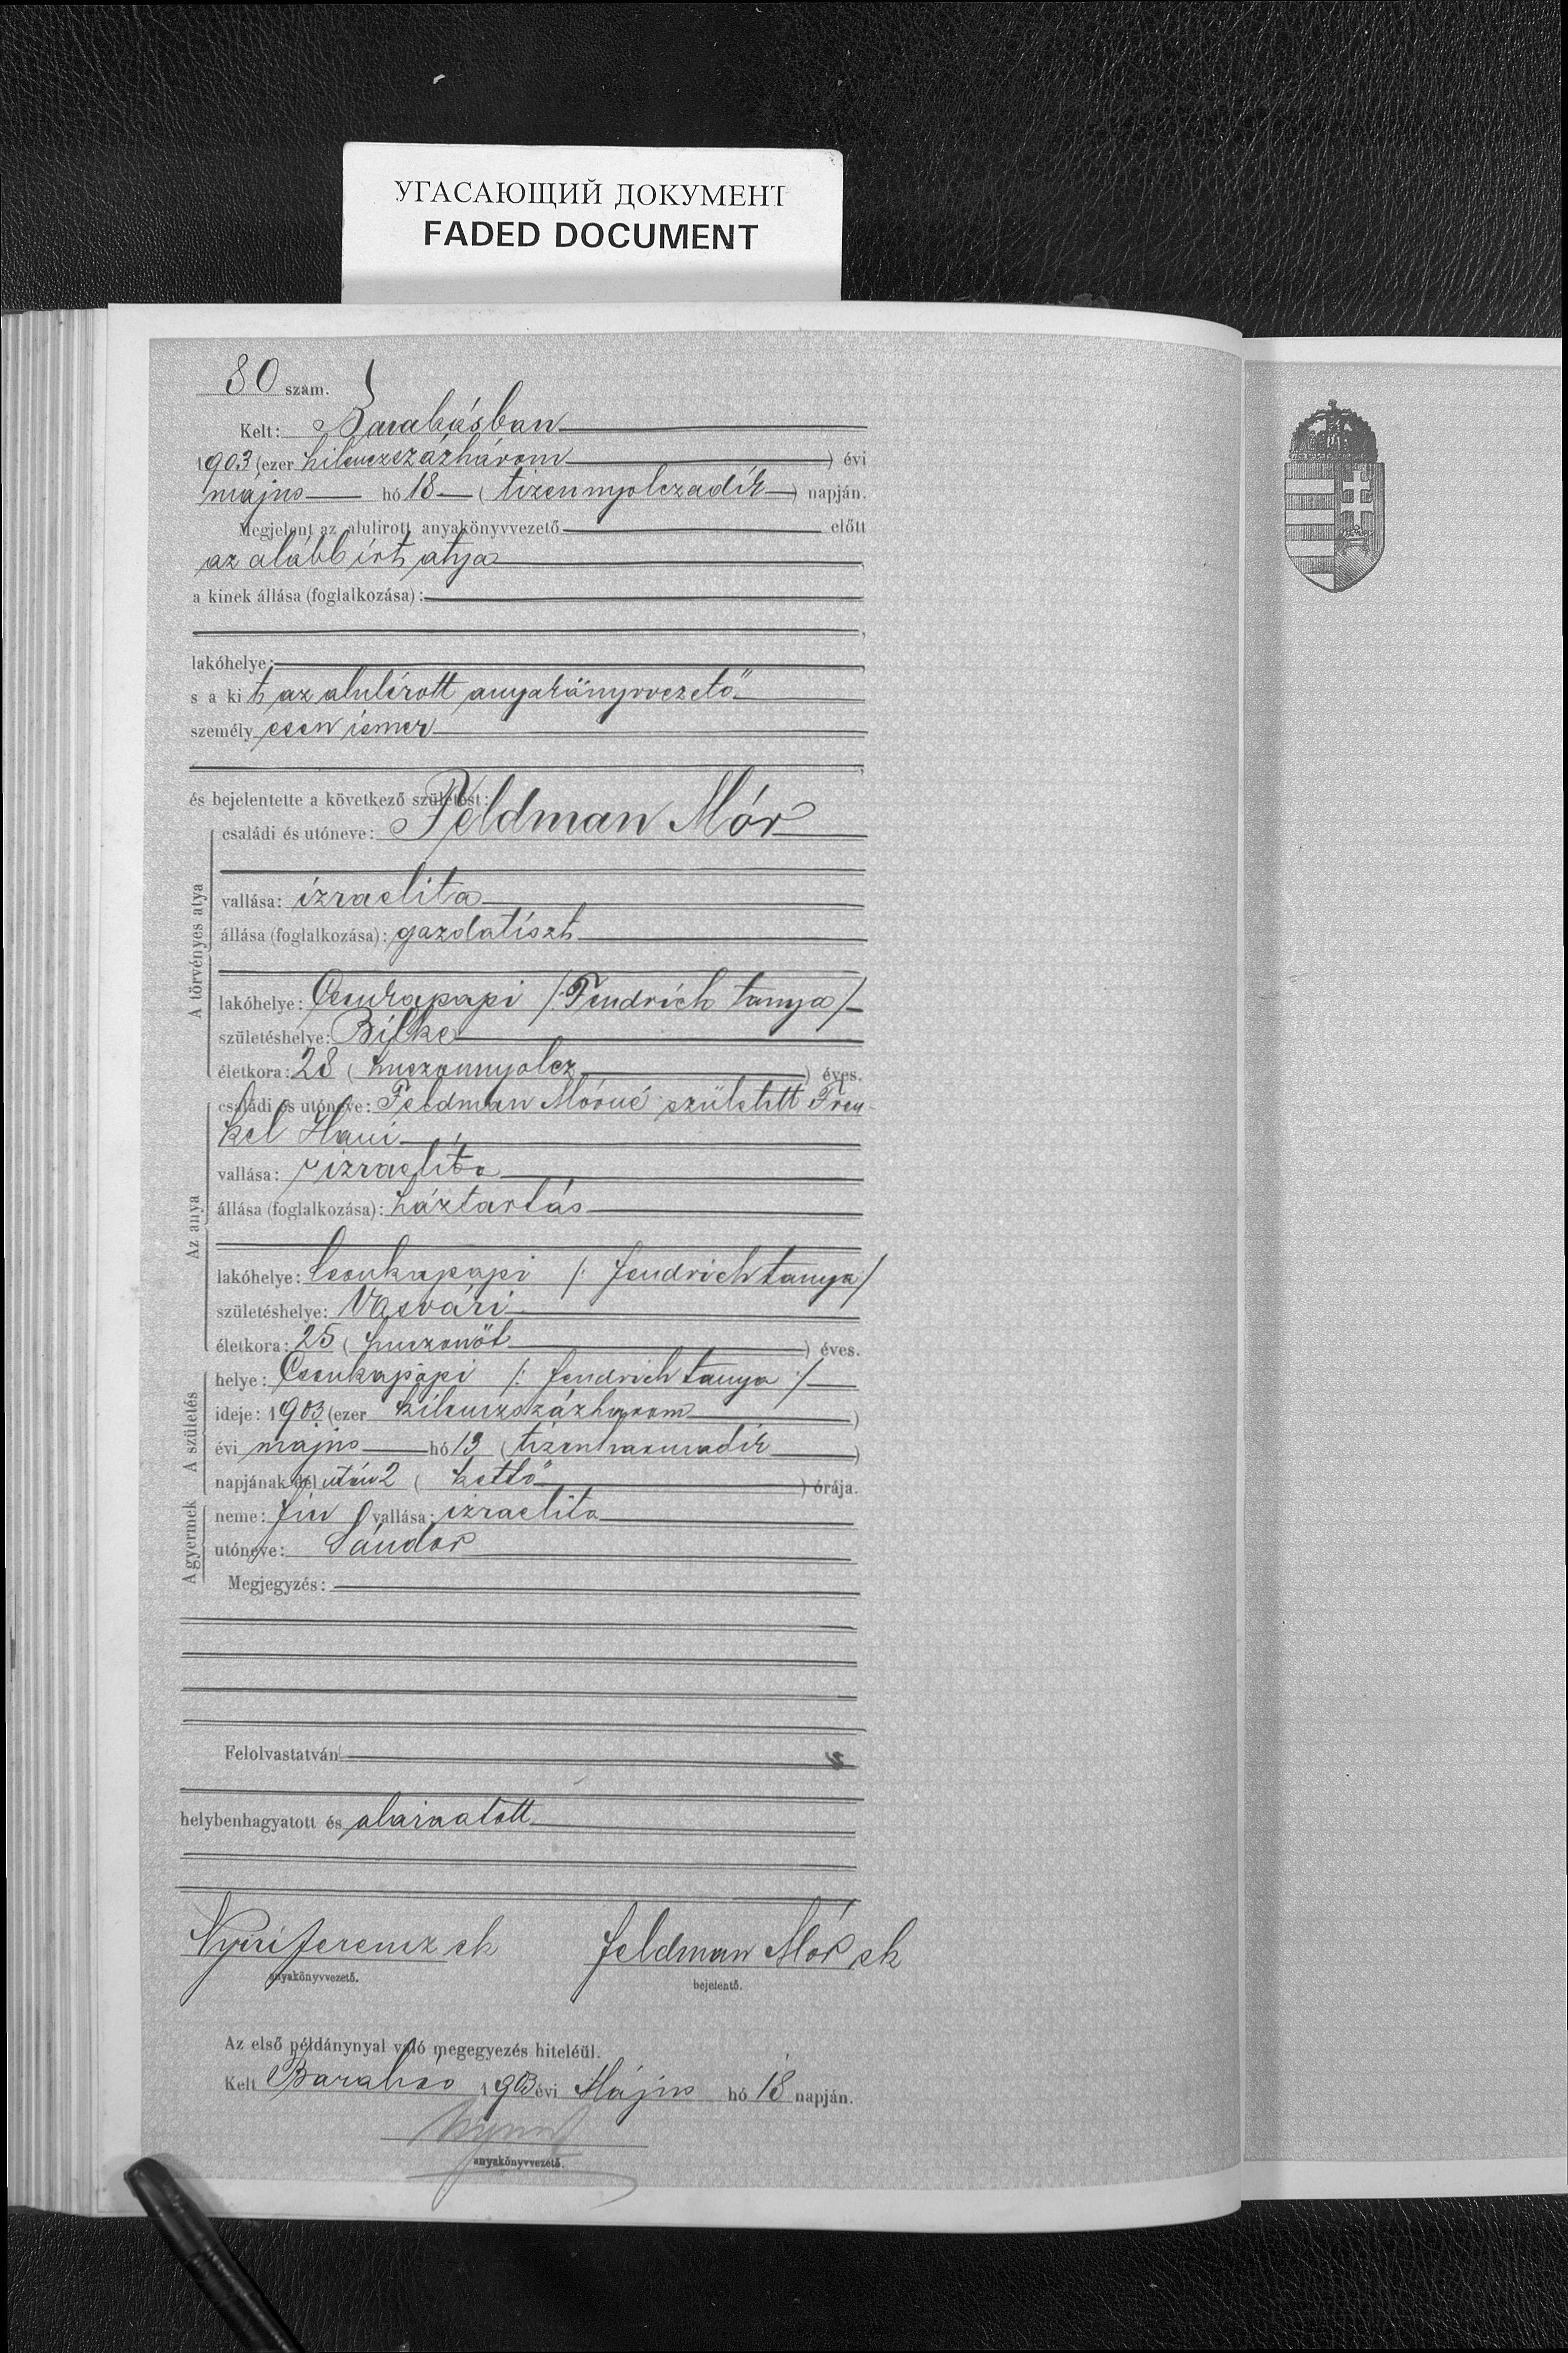 УГАСАЮЩИЙ ДОКУМЕНТ
FADED DOCUMENT
80 szám.
Kelt: Barabásban
1903 (ezer kilenczszázhárom ) évi
május hó 18 (tizennyolczadik) napján.
Megjelent az alulirott anyakönyvvezető előtt
az alább írt atya
a kinek állása (foglalkozása):
lakóhelye:
s a kit az alulírott anyakönyvvezető
személyesen ismer
és bejelentette a következő születést:
A törvényes atya
családi és utóneve: Feldman Mór
vallása: izraelita
állása (foglalkozása): gazdatiszt
lakóhelye: Csonkapapi /: Fendrich tanya /
születéshelye: Bilke
életkora: 28 (huszonnyolcz ) éves.
Az anya
családi és utóneve: Feldman Mórné született Fren
kel Hani
vallása: izraelita
állása (foglalkozása): háztartás
lakóhelye: Csonkapapi /: Fendrich tanya /
születéshelye: Vásvári
életkora: 25 (huszonöt ) éves.
A születés
helye: Csonkapápi /: Fendrich tanya :/
ideje: 1903 (ezer kilenczszázhárom )
évi május hó 13 (tizenharmadik )
napjának dél után 2 ( kettő ) órája.
A gyermek
neme: fiu vallása: izraelita
utóneve: Sándor
Megjegyzés:
Felolvastatván
helybenhagyatott és aláiratott
Nyiri Ferencz sk Feldman Mór sk
anyakönyvvezető. bejelentő.
Az első példánynyal való megegyezés hiteléül.
Kelt Barabás 1903 évi Május hó 18 napján.
anyakönyvvezető.